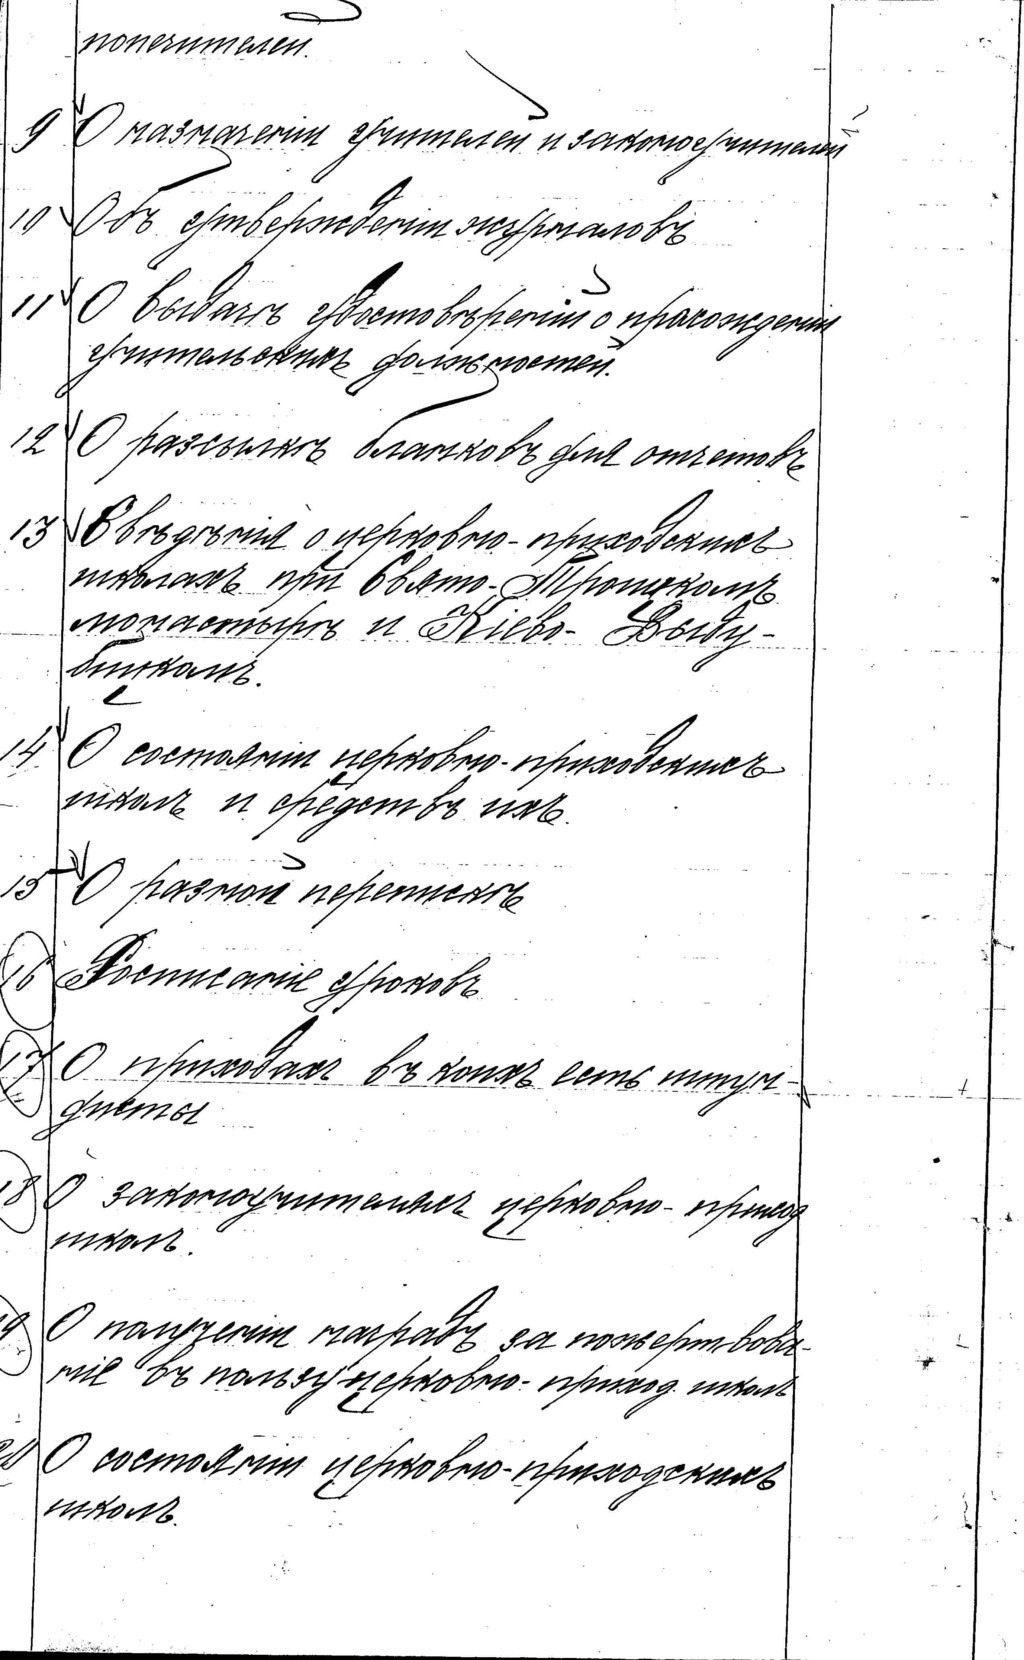 попечителей.
9 О назначеніи учителей и законоучителей
10 Объ утвержденіи журналовъ
11 О выдачѣ удостовѣреній о прахожденіи
учительскихъ должностей.
12 О разсылкѣ бланковъ для отчетовъ
13 Свѣдѣнія о церковно-приходскихъ
школахъ при Свято-Троицкомъ
монастырѣ и Кіево-Выду-
бицкомъ.
14 О состояніи церковно-приходскихъ
школъ и средствъ ихъ.
15 О разной перепискѣ
16 Росписаніе уроковъ
17 О приходахъ въ коихъ есть штун-
дисты
18 О законоучителяхъ церковно-приход
школъ.
19 О полученіи наградъ за пожертвова-
ніе въ пользу церковно-приход. школъ
20 О состояніи церковно-приходскихъ
школъ.